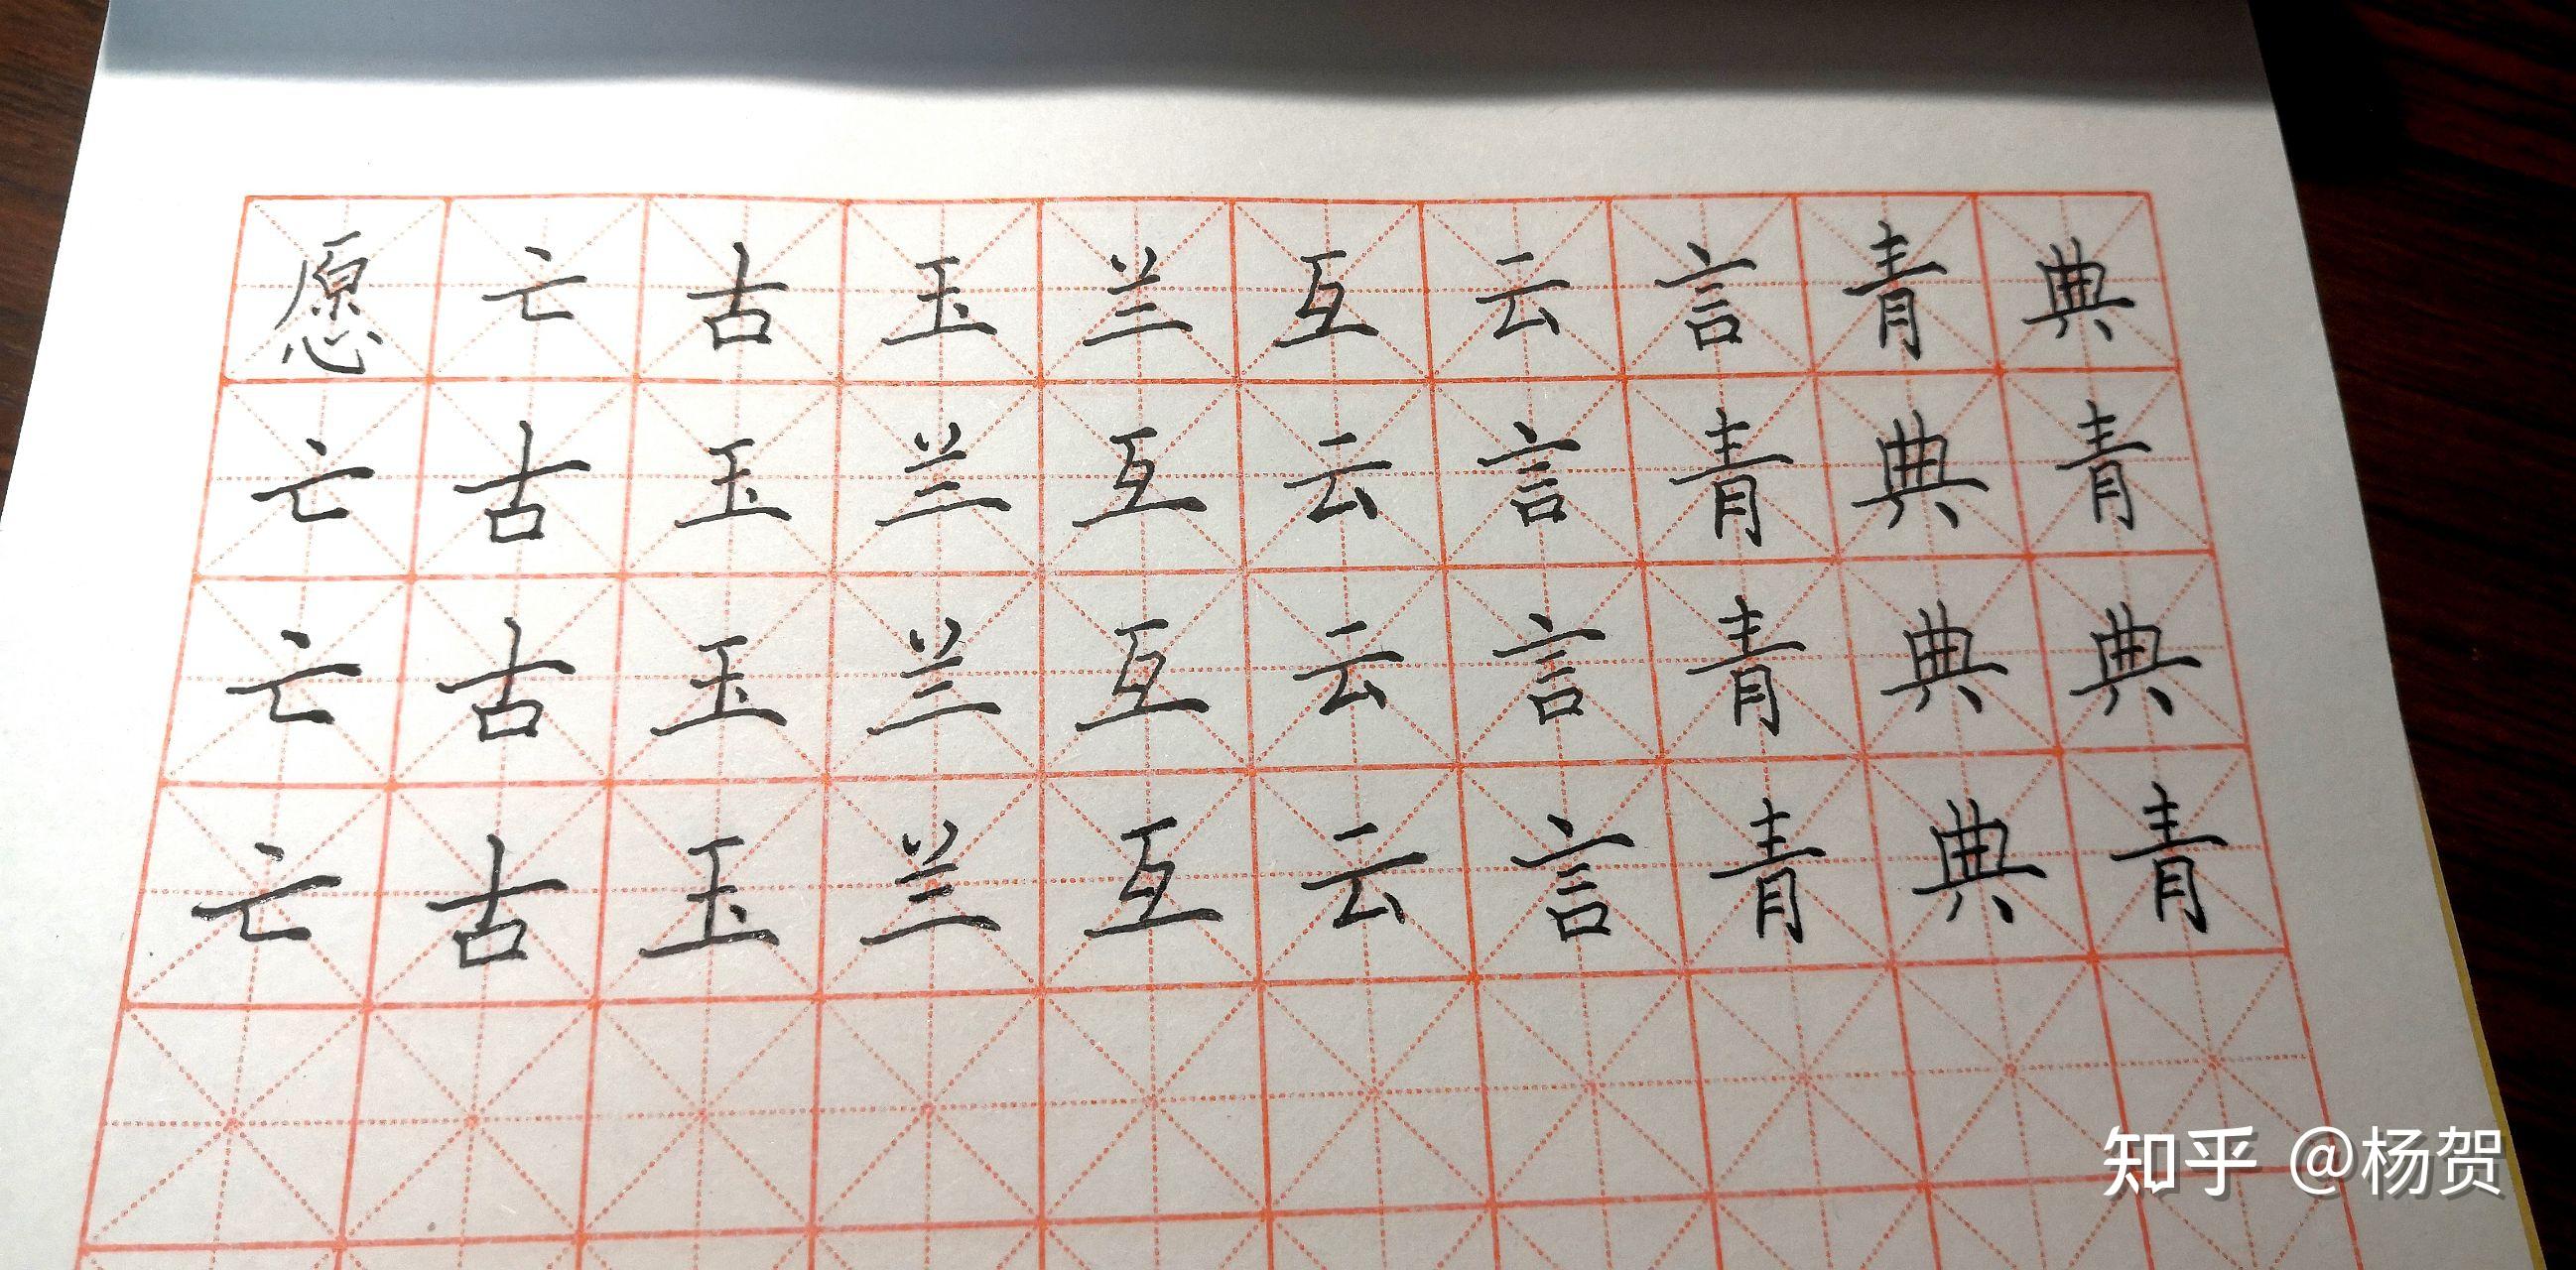 愿亡古玉兰互云言青典
亡古玉兰互云言青典青
亡古玉兰互云言青典典
亡古玉兰互云言青典青
知乎 @杨贺